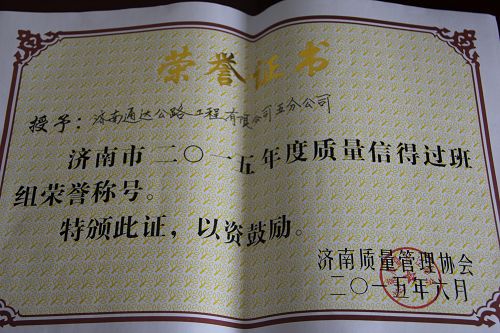 荣誉证书
授予：济南通达公路工程有限公司五分公司
济南市二〇一五年度质量信得过班
组荣誉称号。
特颁此证，以资鼓励。
济南质量管理协会
二〇一五年六月